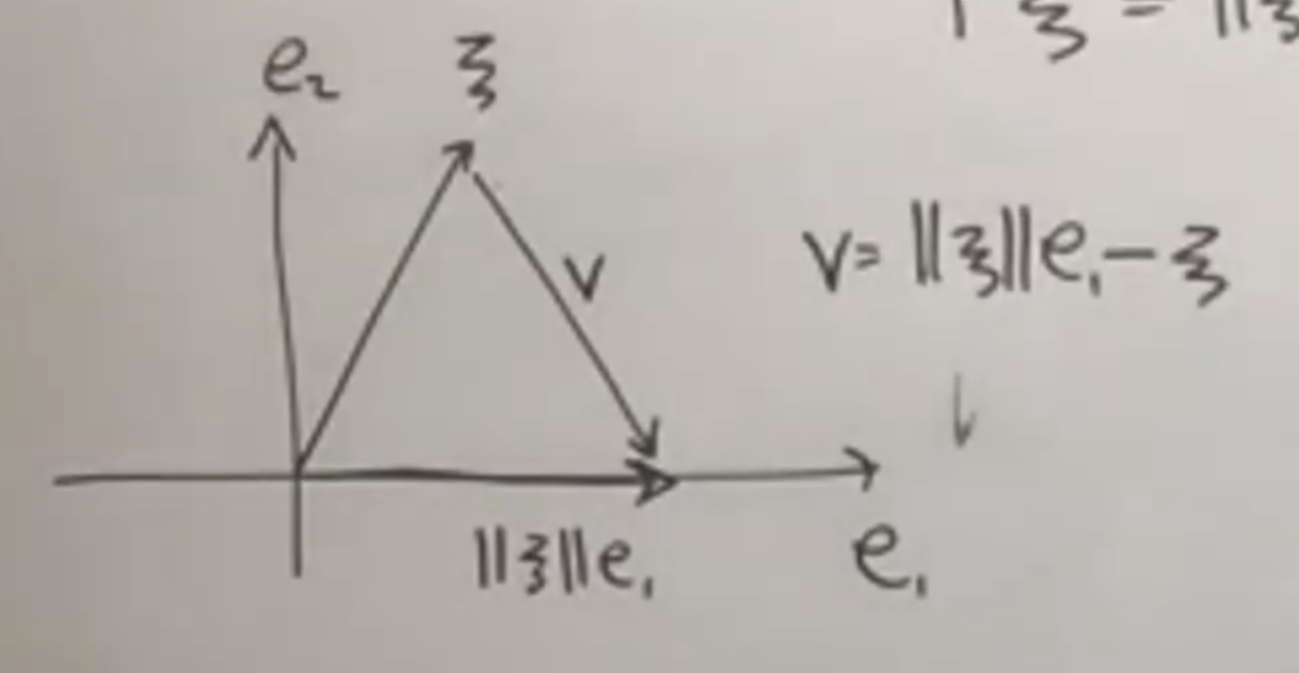 ξ = ‖ξ
e₂ ξ
v
v= ‖ξ‖e₁-ξ
‖ξ‖e₁ e₁